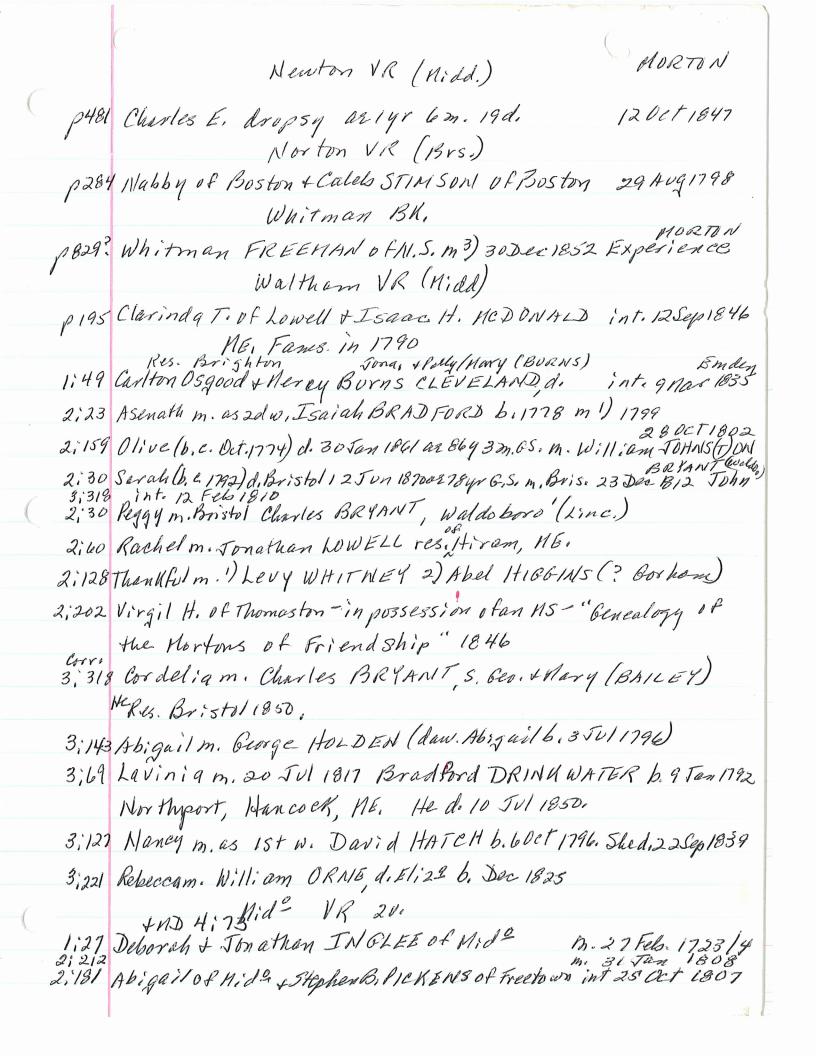 Newton VR (Midd.) MORTON
p481 Charles E. dropsy ae 1yr 6m. 19d. 12 Oct 1847
Norton VR (Brs.)
p284 Nabby of Boston & Caleb STIMSON of Boston 29 Aug 1798
Whitman BK.
MORTON
p829? Whitman FREEMAN of N.S. m 3) 30 Dec 1852 Experience
Waltham VR (Midd)
p195 Clarinda T. of Lowell & Isaac H. McDONALD int. 12 Sep 1846
ME. Fams. in 1790
Res. Brighton Jona. & Polly/Mary (BURNS) Emden
1:49 Carlton Osgood & Mercy Burns CLEVELAND, d. int. 9 Mar 1835
2:23 Asenath m. as 2d w. Isaiah BRADFORD b. 1778 m 1) 1799
28 OCT 1802
2:159 Olive (b.c. Oct. 1774) d. 30 Jan 1861 ae 86y 3m. GS. m. William JOHNS(T)ON
BRYANT (Waldo.)
2:30 Sarah (b.c 1792) d. Bristol 12 Jun 1870 ae 78yr G.S. m. Bris. 23 Dec 1812 John
3:318 int. 12 Feb 1810
2:30 Peggy m. Bristol Charles BRYANT, Waldoboro' (Linc.)
of
2:60 Rachel m. Jonathan LOWELL res. Hiram, ME.
2:128 Thankful m. 1) LEVY WHITNEY 2) Abel HIGGINS (? Gorham)
2:202 Virgil H. of Thomaston - in possession of an MS - "Genealogy of
the Mortons of Friendship" 1846
Corr.
3:318 Cordelia m. Charles BRYANT, s. Geo. & Mary (BAILEY)
Res. Bristol 1850.
3:143 Abigail m. George HOLDEN (daw. Abigail b. 3 Jul 1796)
3:69 Lavinia m. 20 Jul 1817 Bradford DRINKWATER b. 9 Jan 1792
Northport, Hancock, ME. He d. 10 Jul 1850.
3:127 Nancy m. as 1st w. David HATCH b. 6 Oct 1796. She d. 22 Sep 1839
3:221 Rebecca m. William ORNE, d. Eliza b. Dec 1825
Mido VR 2v.
+ND 4:73
1:27 Deborah & Jonathan INGLEE of Mido m. 27 Feb. 1723/4
2:212 m. 31 Jan 1808
2:181 Abigail of Mido & Stephen B. PICKENS of Freetown int 25 Oct 1807